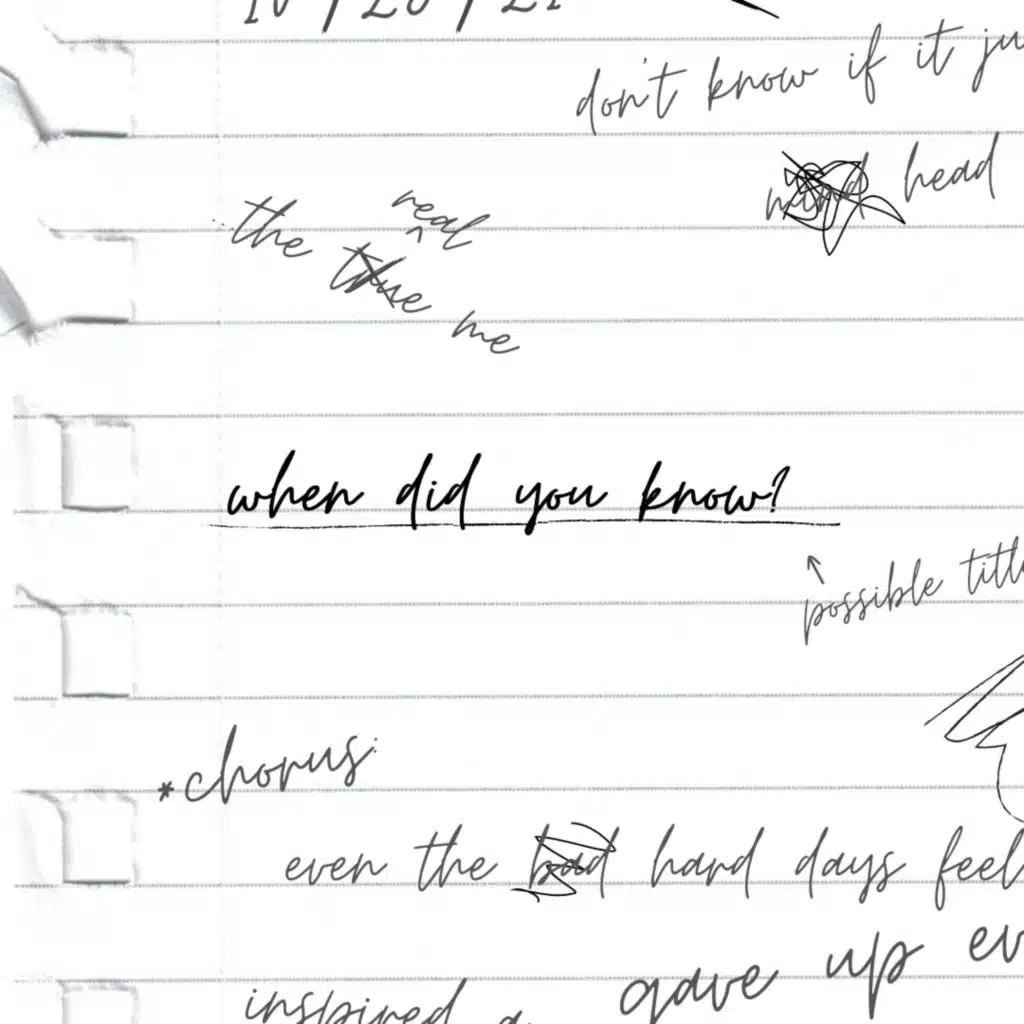 don't know if it ju
mind head
real
the true me
when did you know?
possible titl
*chorus:
even the bad hard days feel
gave up ev
inspired a